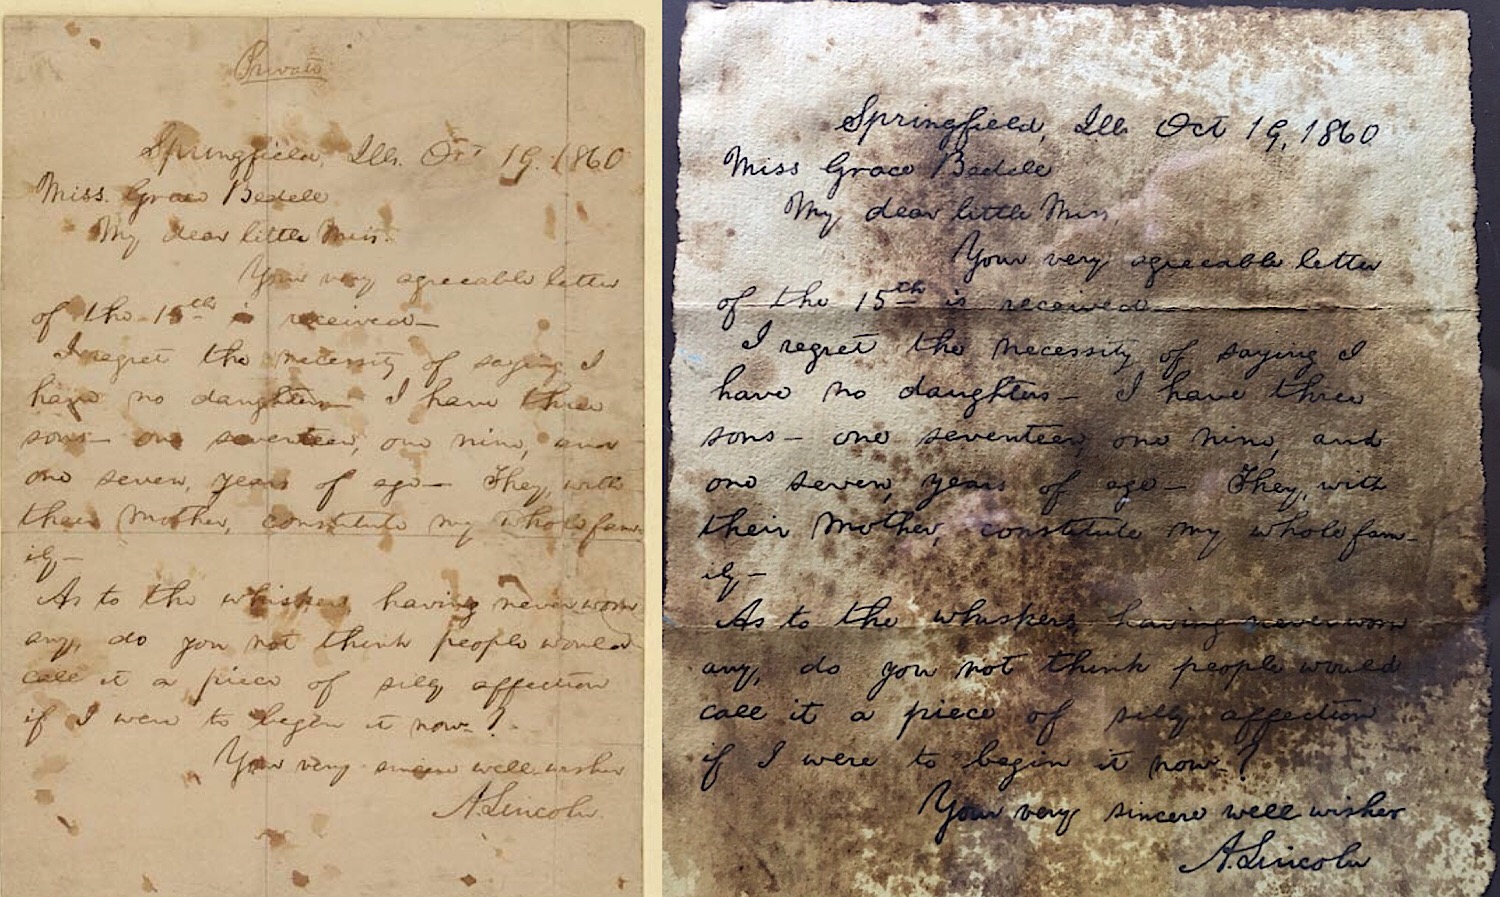 Private
Springfield, Ills. Oct 19. 1860
Miss. Grace Bedell
My dear little Miss.
Your very agreeable letter
of the 15th is received—
I regret the necessity of saying I
have no daughters— I have three
sons— one seventeen, one nine, and
one seven, years of age— They, with
their mother, constitute my whole fam-
ily—
As to the whiskers, having never worn
any, do you not think people would
call it a piece of silly affection
if I were to begin it now?
Your very sincere well-wisher
A. Lincoln
Springfield, Ills. Oct 19, 1860
Miss Grace Bedell
My dear little Miss,
Your very agreeable letter
of the 15th is received—
I regret the necessity of saying I
have no daughters— I have three
sons— one seventeen, one nine, and
one seven, years of age— They, with
their mother, constitute my whole fam-
ily—
As to the whiskers, having never worn
any, do you not think people would
call it a piece of silly affection
if I were to begin it now?
Your very sincere well wisher
A. Lincoln